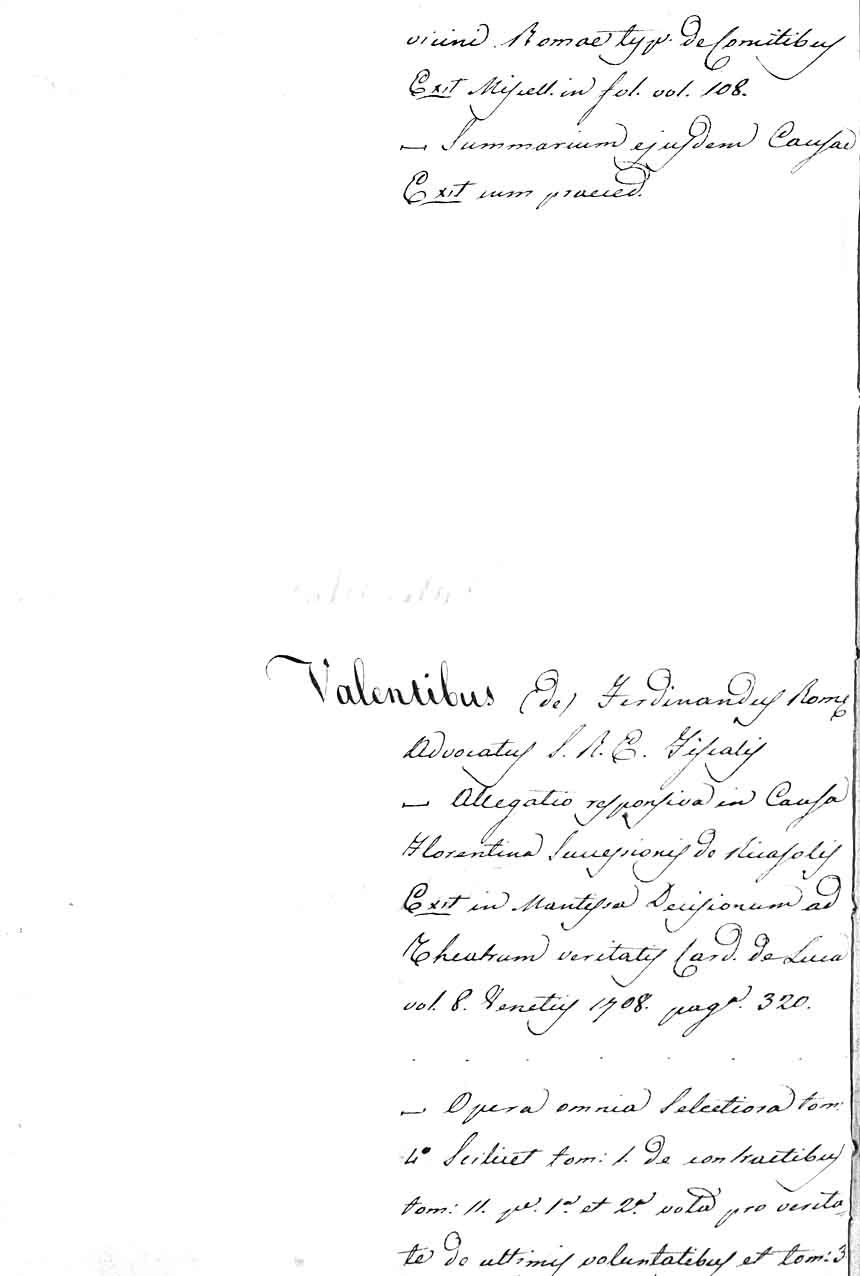 vicini Romae typ. de Comitibus
Exit Miscell. in fol. vol. 108.
— Summarium ejusdem Causae
Exit cum praeced.
Valentibus (de) Ferdinandus Rome
Advocatus S. R. E. Fiscalis
— Allegatio responsiva in Causa
Florentina Successionis de Ricasolis
Exit in Mantissa Decisionum ad
Theatrum veritatis Card. de Luca
vol. 8. Venetiis 1708. pagª. 320.
— Opera omnia Selectiora tom:
4º Scilicet tom: 1. de contractibus
tom: 11. pª. 1ª et 2ª vota pro verita-
te de ultimis voluntatibus et tom: 3